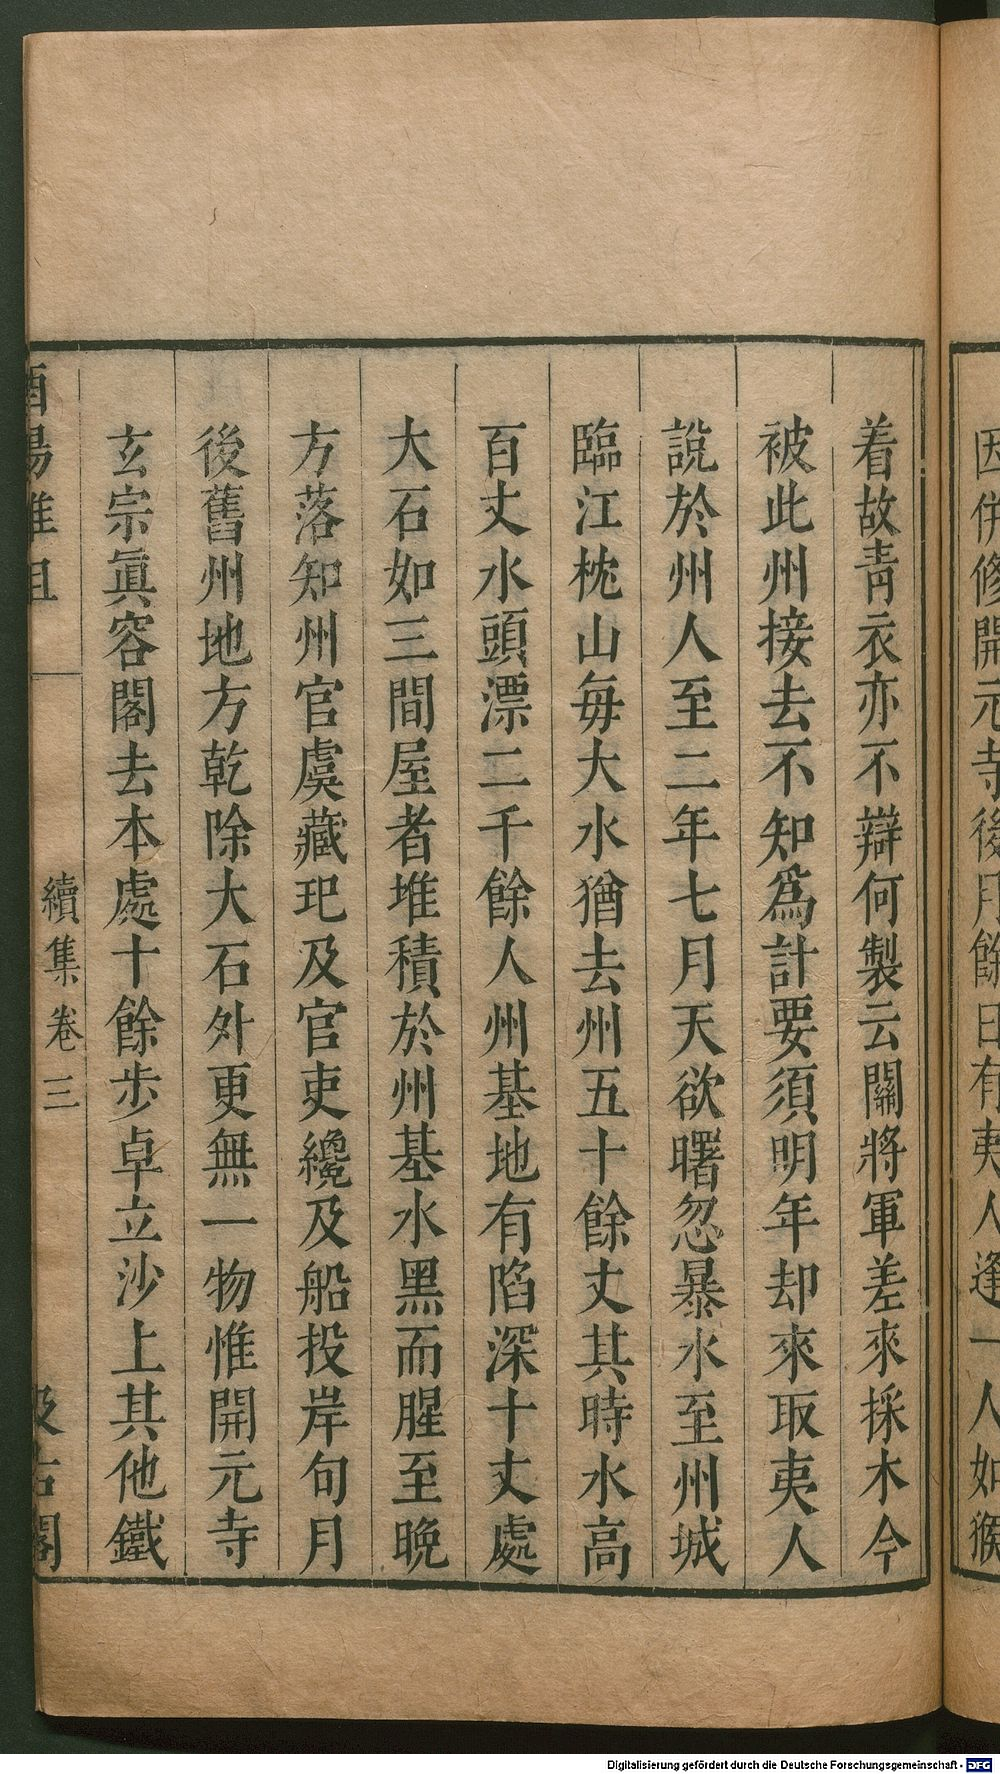 因併修開元寺後月餘日有夷人逢一人如猴
着故青衣亦不辯何製云關將軍差來採木今
被此州接去不知爲計要須明年却來取夷人
說於州人至二年七月天欲曙忽暴水至州城
臨江枕山每大水猶去州五十餘丈其時水高
百丈水頭漂二千餘人州基地有陷深十丈處
大石如三間屋者堆積於州基水黑而腥至晚
方落知州官虞藏玘及官吏纔及船投岸旬月
後舊州地方乾除大石外更無一物惟開元寺
玄宗眞容閣去本處十餘步卓立沙上其他鐵
酉陽雜俎
續集卷三
汲古閣
Digitalisierung gefördert durch die Deutsche Forschungsgemeinschaft - DFG